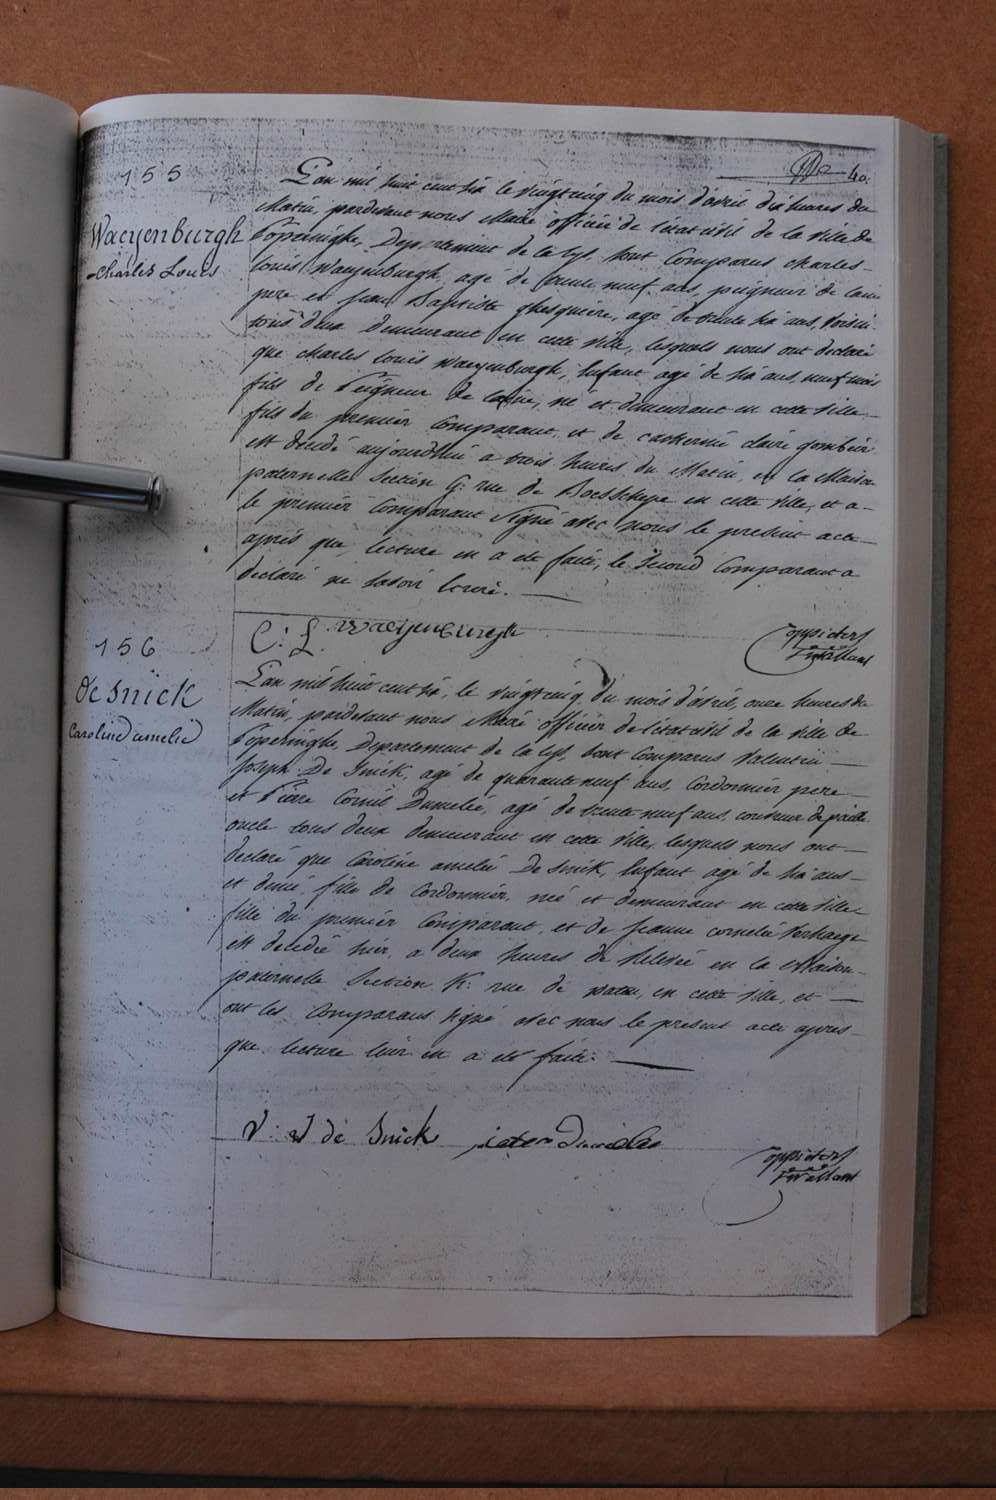 40.
155
Waeyenburgh
Charles Louis
L'an mil huit cent six le vingtcinq du mois d'avril dix heures du
Matin, pardevant nous Maire officier de l'etat civil de la ville de
Poperinghe, Departement de la Lys, sont Comparus charles-
Louis Waeyenburgh, agé de trente neuf ans, peigneur de laine
pere et jean Baptiste Ghesquiere, agé de trente six ans, voisin
tous deux demeurant en cette ville, lesquels nous ont declaré
que charles Louis Waeyenburgh, Enfant agé de six ans, neuf mois
fils de Peigneur de laine, né et demeurant en cette ville
fils du premier Comparant, et de catherine claire gombeir
est decedé aujourdhui a trois heures du Matin, en la Maison
paternelle Section G: rue de Boesschepe en cette ville, et a-
le premier Comparant signé avec nous le present acte
après que, lecture en a eté faite, le second Comparant a
declaré ne savoir Ecrire.
C: L. Waeijenburgh
156
de Snick
Caroline amelie
L'an mil huit cent six, le vingtcinq du mois d'avril, onze heures du
Matin, pardevant nous Maire officier de l'etat civil de la ville de
Poperinghe, Departement de la Lys, sont Comparus Valentin
Joseph De Snick, agé de quarante neuf ans, Cordonnier pere
et Piere Cornil Dumelie, agé de trente neuf ans, couvreur de paille
oncle tous deux demeurant en cette ville, lesquels nous ont-
declaré que Caroline amelie De Snick, Enfant agé de six ans-
et demie, fille de Cordonnier, née et demeurant en cette ville
fille du premier Comparant, et de jeanne cornelie Verhaege
est decedée hier, a deux heures de Relevée en la Maison-
paternelle Section K: rue de en cette ville, et
ont les Comparans signé avec nous le present acte apres-
que lecture leur en a eté faite.
V: J de Snick pieter